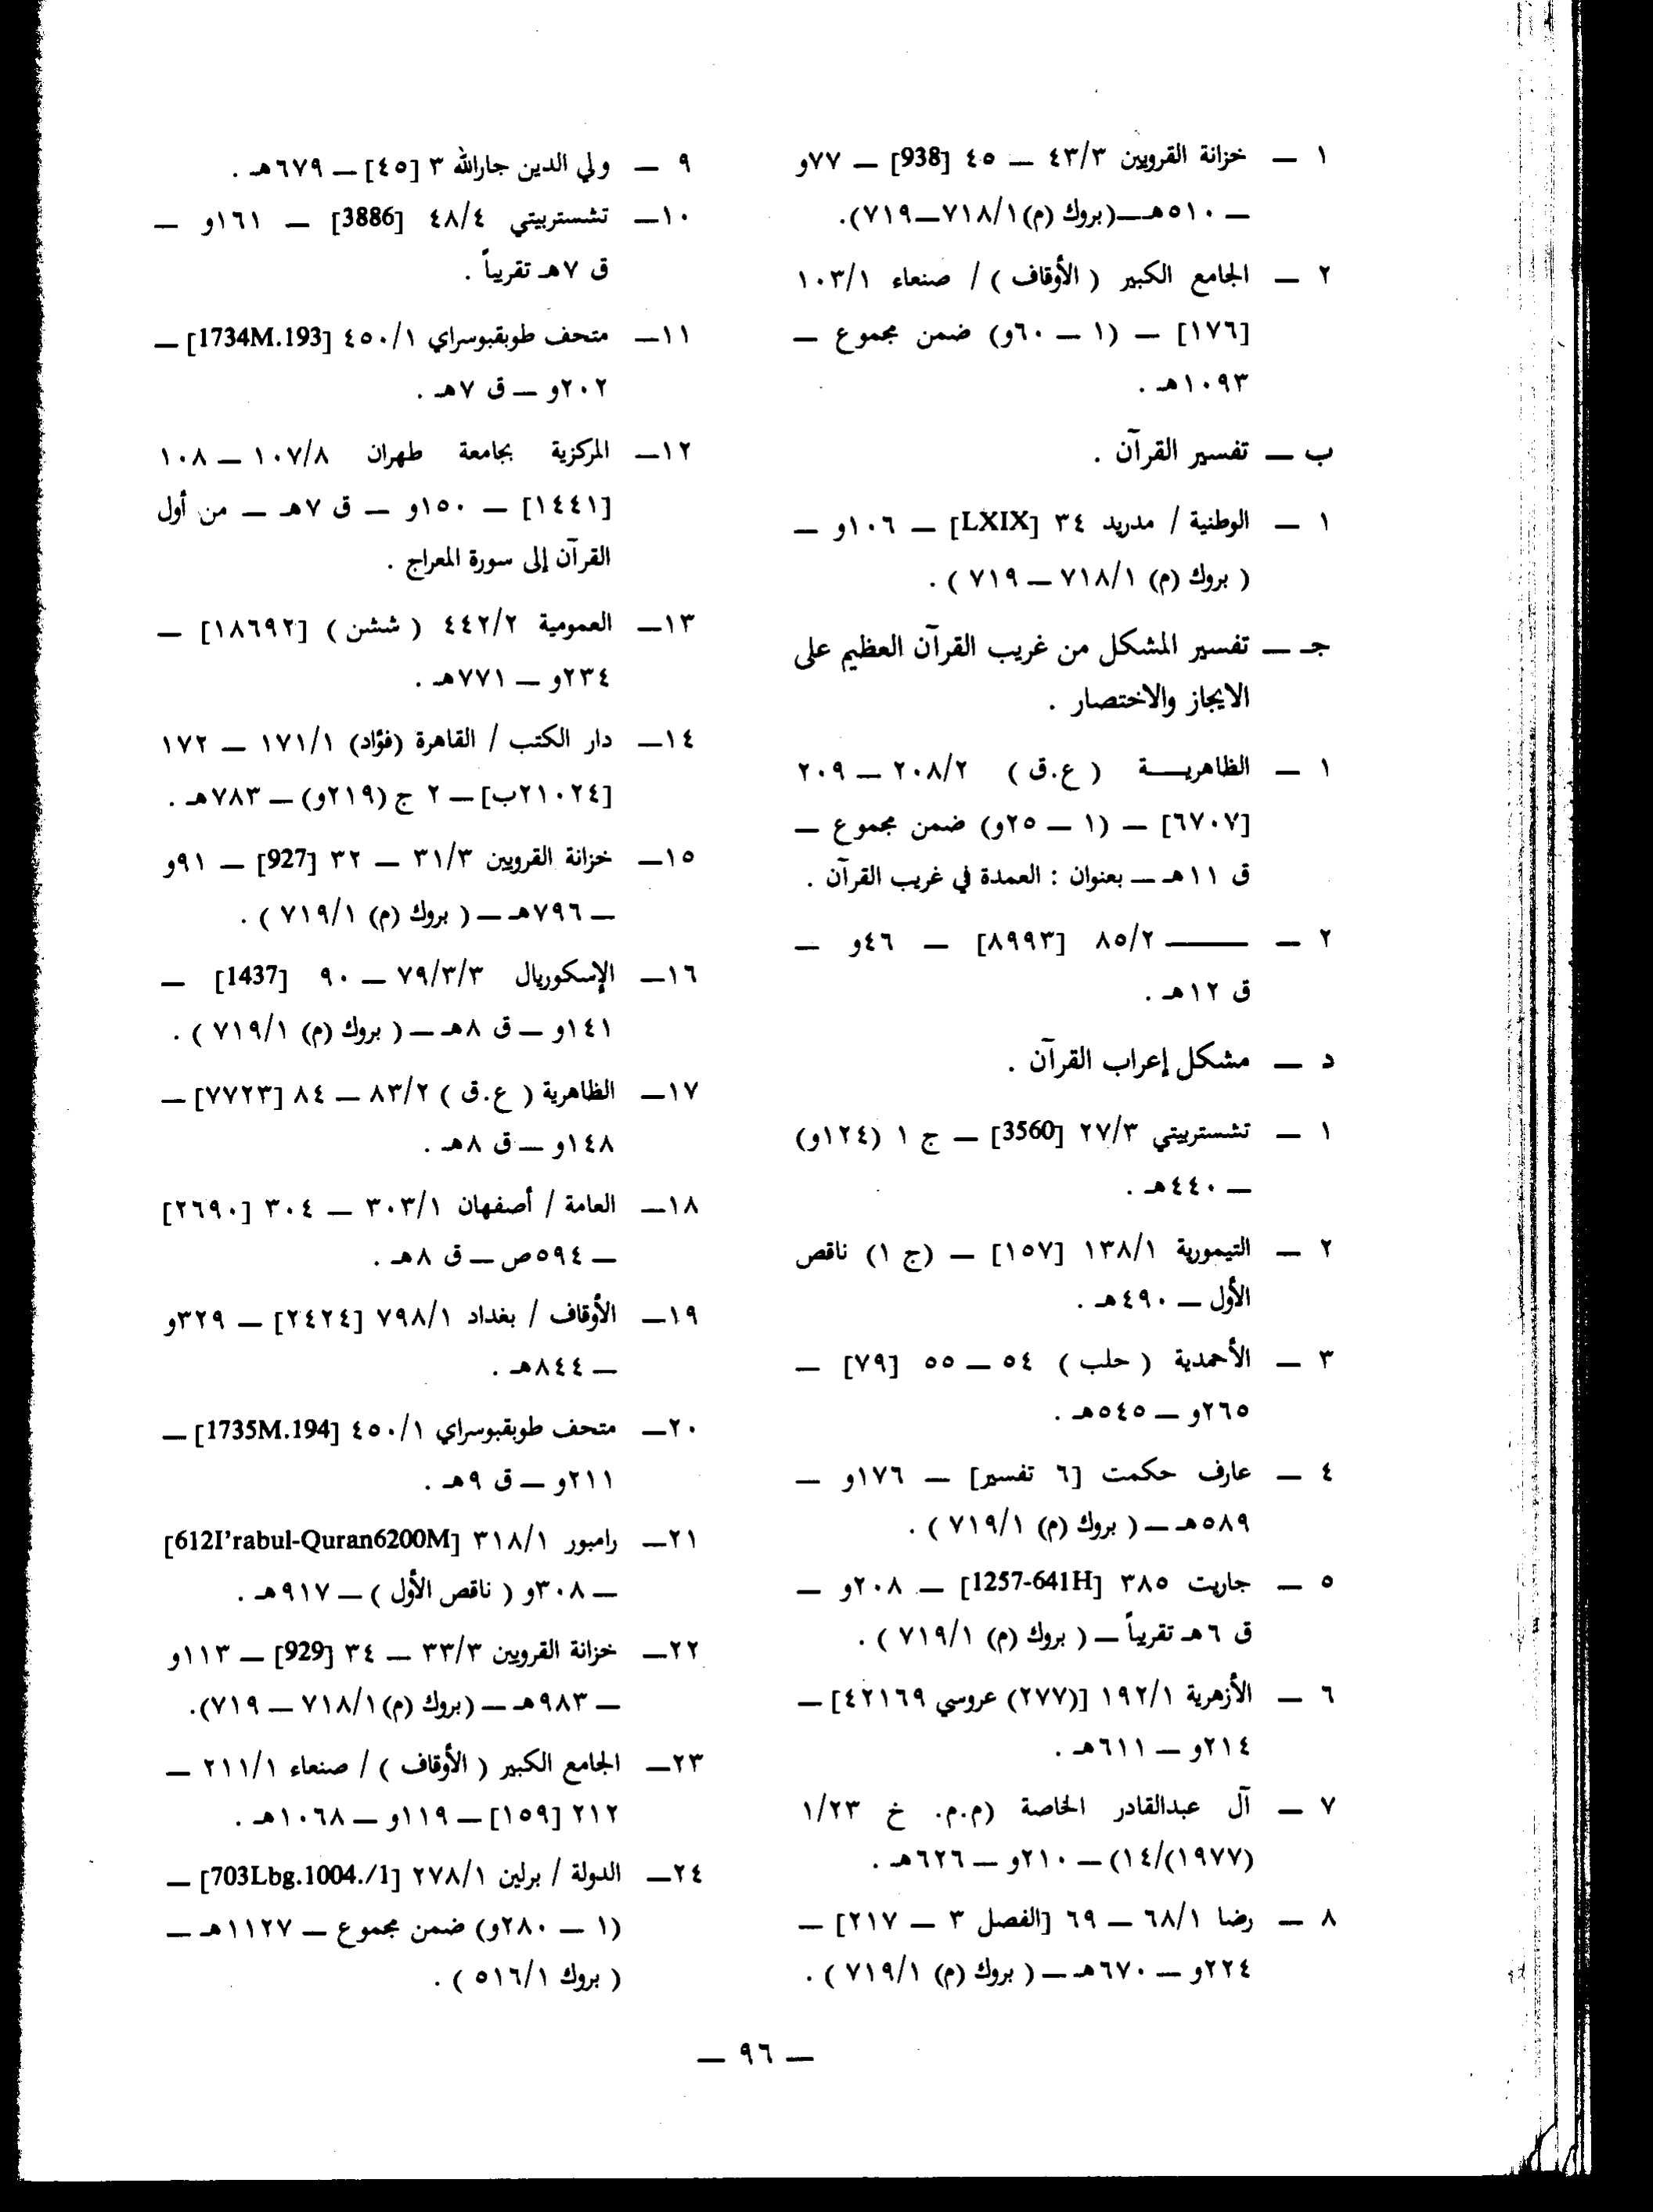 ١ — خزانة القرويين ٤٣/٣ — ٤٥ [938] — ٧٧و
— ٥١٠هـ — (بروك (م) ٧١٨/١—٧١٩).
٢ — الجامع الكبير ( الأوقاف ) / صنعاء ١٠٣/١
[١٧٦] — (١ — ٦٠و) ضمن مجموع —
١٠٩٣هـ .
ب — تفسير القرآن .
١ — الوطنية / مدريد ٣٤ [LXIX] — ١٠٦و —
( بروك (م) ٧١٨/١ — ٧١٩ ) .
جـ — تفسير المشكل من غريب القرآن العظيم على
الايجاز والاختصار .
١ — الظاهريـــة ( ع.ق ) ٢٠٨/٢ — ٢٠٩
[٦٧٠٧] — (١ — ٢٥و) ضمن مجموع —
ق ١١هـ — بعنوان : العمدة في غريب القرآن .
٢ — ——— ٨٥/٢ [٨٩٩٣] — ٤٦و —
ق ١٢هـ .
د — مشكل إعراب القرآن .
١ — تشستربيتي ٢٧/٣ [3560] — ج ١ (١٢٤و)
— ٤٤٠هـ .
٢ — التيمورية ١٣٨/١ [١٥٧] — (ج ١) ناقص
الأول — ٤٩٠هـ .
٣ — الأحمدية ( حلب ) ٥٤ — ٥٥ [٧٩] —
٢٦٥و — ٥٤٥هـ .
٤ — عارف حكمت [٦ تفسير] — ١٧٦و —
٥٨٩هـ — ( بروك (م) ٧١٩/١ ) .
٥ — جاريت ٣٨٥ [1257-641H] — ٢٠٨و —
ق ٦هـ تقريباً — ( بروك (م) ٧١٩/١ ) .
٦ — الأزهرية ١٩٢/١ [(٢٧٧) عروسي ٤٢١٦٩] —
٢١٤و — ٦١١هـ .
٧ — آل عبدالقادر الخاصة (م.م. خ ١/٢٣
(١٩٧٧)/١٤) — ٢١٠و — ٦٢٦هـ .
٨ — رضا ٦٨/١ — ٦٩ [الفصل ٣ — ٢١٧] —
٢٢٤و — ٦٧٠هـ — ( بروك (م) ٧١٩/١ ) .
٩ — ولي الدين جارالله ٣ [٤٥] — ٦٧٩هـ .
١٠— تشستربيتي ٤٨/٤ [3886] — ١٦١و —
ق ٧هـ تقريباً .
١١— متحف طوبقبوسراي ٤٥٠/١ [1734M.193] —
٢٠٢و — ق ٧هـ .
١٢— المركزية بجامعة طهران ١٠٧/٨ — ١٠٨
[١٤٤١] — ١٥٠و — ق ٧هـ — من أول
القرآن إلى سورة المعراج .
١٣— العمومية ٤٤٢/٢ ( ششن ) [١٨٦٩٢] —
٢٣٤و — ٧٧١هـ .
١٤— دار الكتب / القاهرة (فؤاد) ١٧١/١ — ١٧٢
[٢١٠٢٤ب] — ٢ ج (٢١٩و) — ٧٨٣هـ .
١٥— خزانة القرويين ٣١/٣ — ٣٢ [927] — ٩١و
— ٧٩٦هـ — ( بروك (م) ٧١٩/١ ) .
١٦— الإسكوريال ٧٩/٣/٣ — ٩٠ [1437] —
١٤١و — ق ٨هـ — ( بروك (م) ٧١٩/١ ) .
١٧— الظاهرية ( ع.ق ) ٨٣/٢ — ٨٤ [٧٧٢٣] —
١٤٨و — ق ٨هـ .
١٨— العامة / أصفهان ٣٠٣/١ — ٣٠٤ [٢٦٩٠]
— ٥٩٤ص — ق ٨هـ .
١٩— الأوقاف / بغداد ٧٩٨/١ [٢٤٢٤] — ٣٢٩و
— ٨٤٤هـ .
٢٠— متحف طوبقبوسراي ٤٥٠/١ [1735M.194] —
٢١١و — ق ٩هـ .
٢١— رامبور ٣١٨/١ [612I'rabul-Quran6200M]
— ٣٠٨و ( ناقص الأول ) — ٩١٧هـ .
٢٢— خزانة القرويين ٣٣/٣ — ٣٤ [929] — ١١٣و
— ٩٨٣هـ — (بروك (م) ٧١٨/١ — ٧١٩).
٢٣— الجامع الكبير ( الأوقاف ) / صنعاء ٢١١/١ —
٢١٢ [١٥٩] — ١١٩و — ١٠٦٨هـ .
٢٤— الدولة / برلين ٢٧٨/١ [703Lbg.1004./1] —
(١ — ٢٨٠و) ضمن مجموع — ١١٢٧هـ —
( بروك ٥١٦/١ ) .
— ٩٦ —